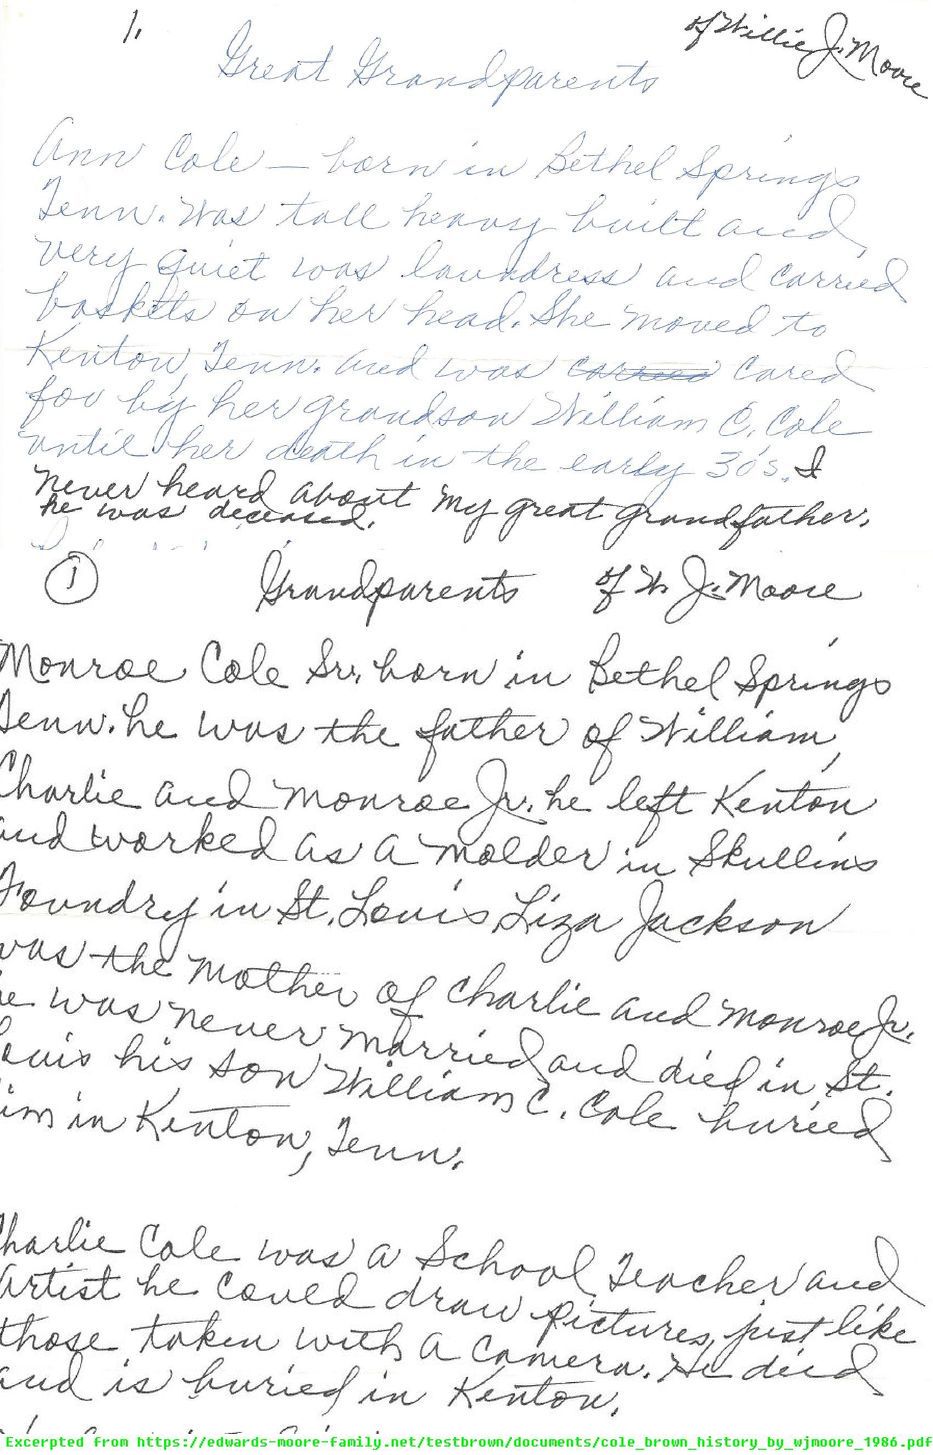 1.
of Willie J. Moore
Great Grandparents
Ann Cole — born in Bethel Springs
Tenn. Was tall heavy built and
very quiet was laundress and carried
baskets on her head. She moved to
Kenton, Tenn. and was carried cared
for by her grandson William C. Cole
until her death in the early 30's. I
never heard about my great grandfather.
he was deceased.
1 Grandparents of W. J. Moore
Monroe Cole Sr. born in Bethel Springs
Tenn. he was the father of William,
Charlie and Monroe Jr. he left Kenton
and worked as a molder in Skullins
Foundry in St. Louis Liza Jackson
was the mother of Charlie and Monroe Jr.
he was never married and died in St.
Louis his son William C. Cole buried
him in Kenton, Tenn.
Charlie Cole was a School Teacher and
Artist he could draw pictures, just like
those taken with a camera. He died
and is buried in Kenton.
Excerpted from https://edwards-moore-family.net/testbrown/documents/cole_brown_history_by_wjmoore_1986.pdf